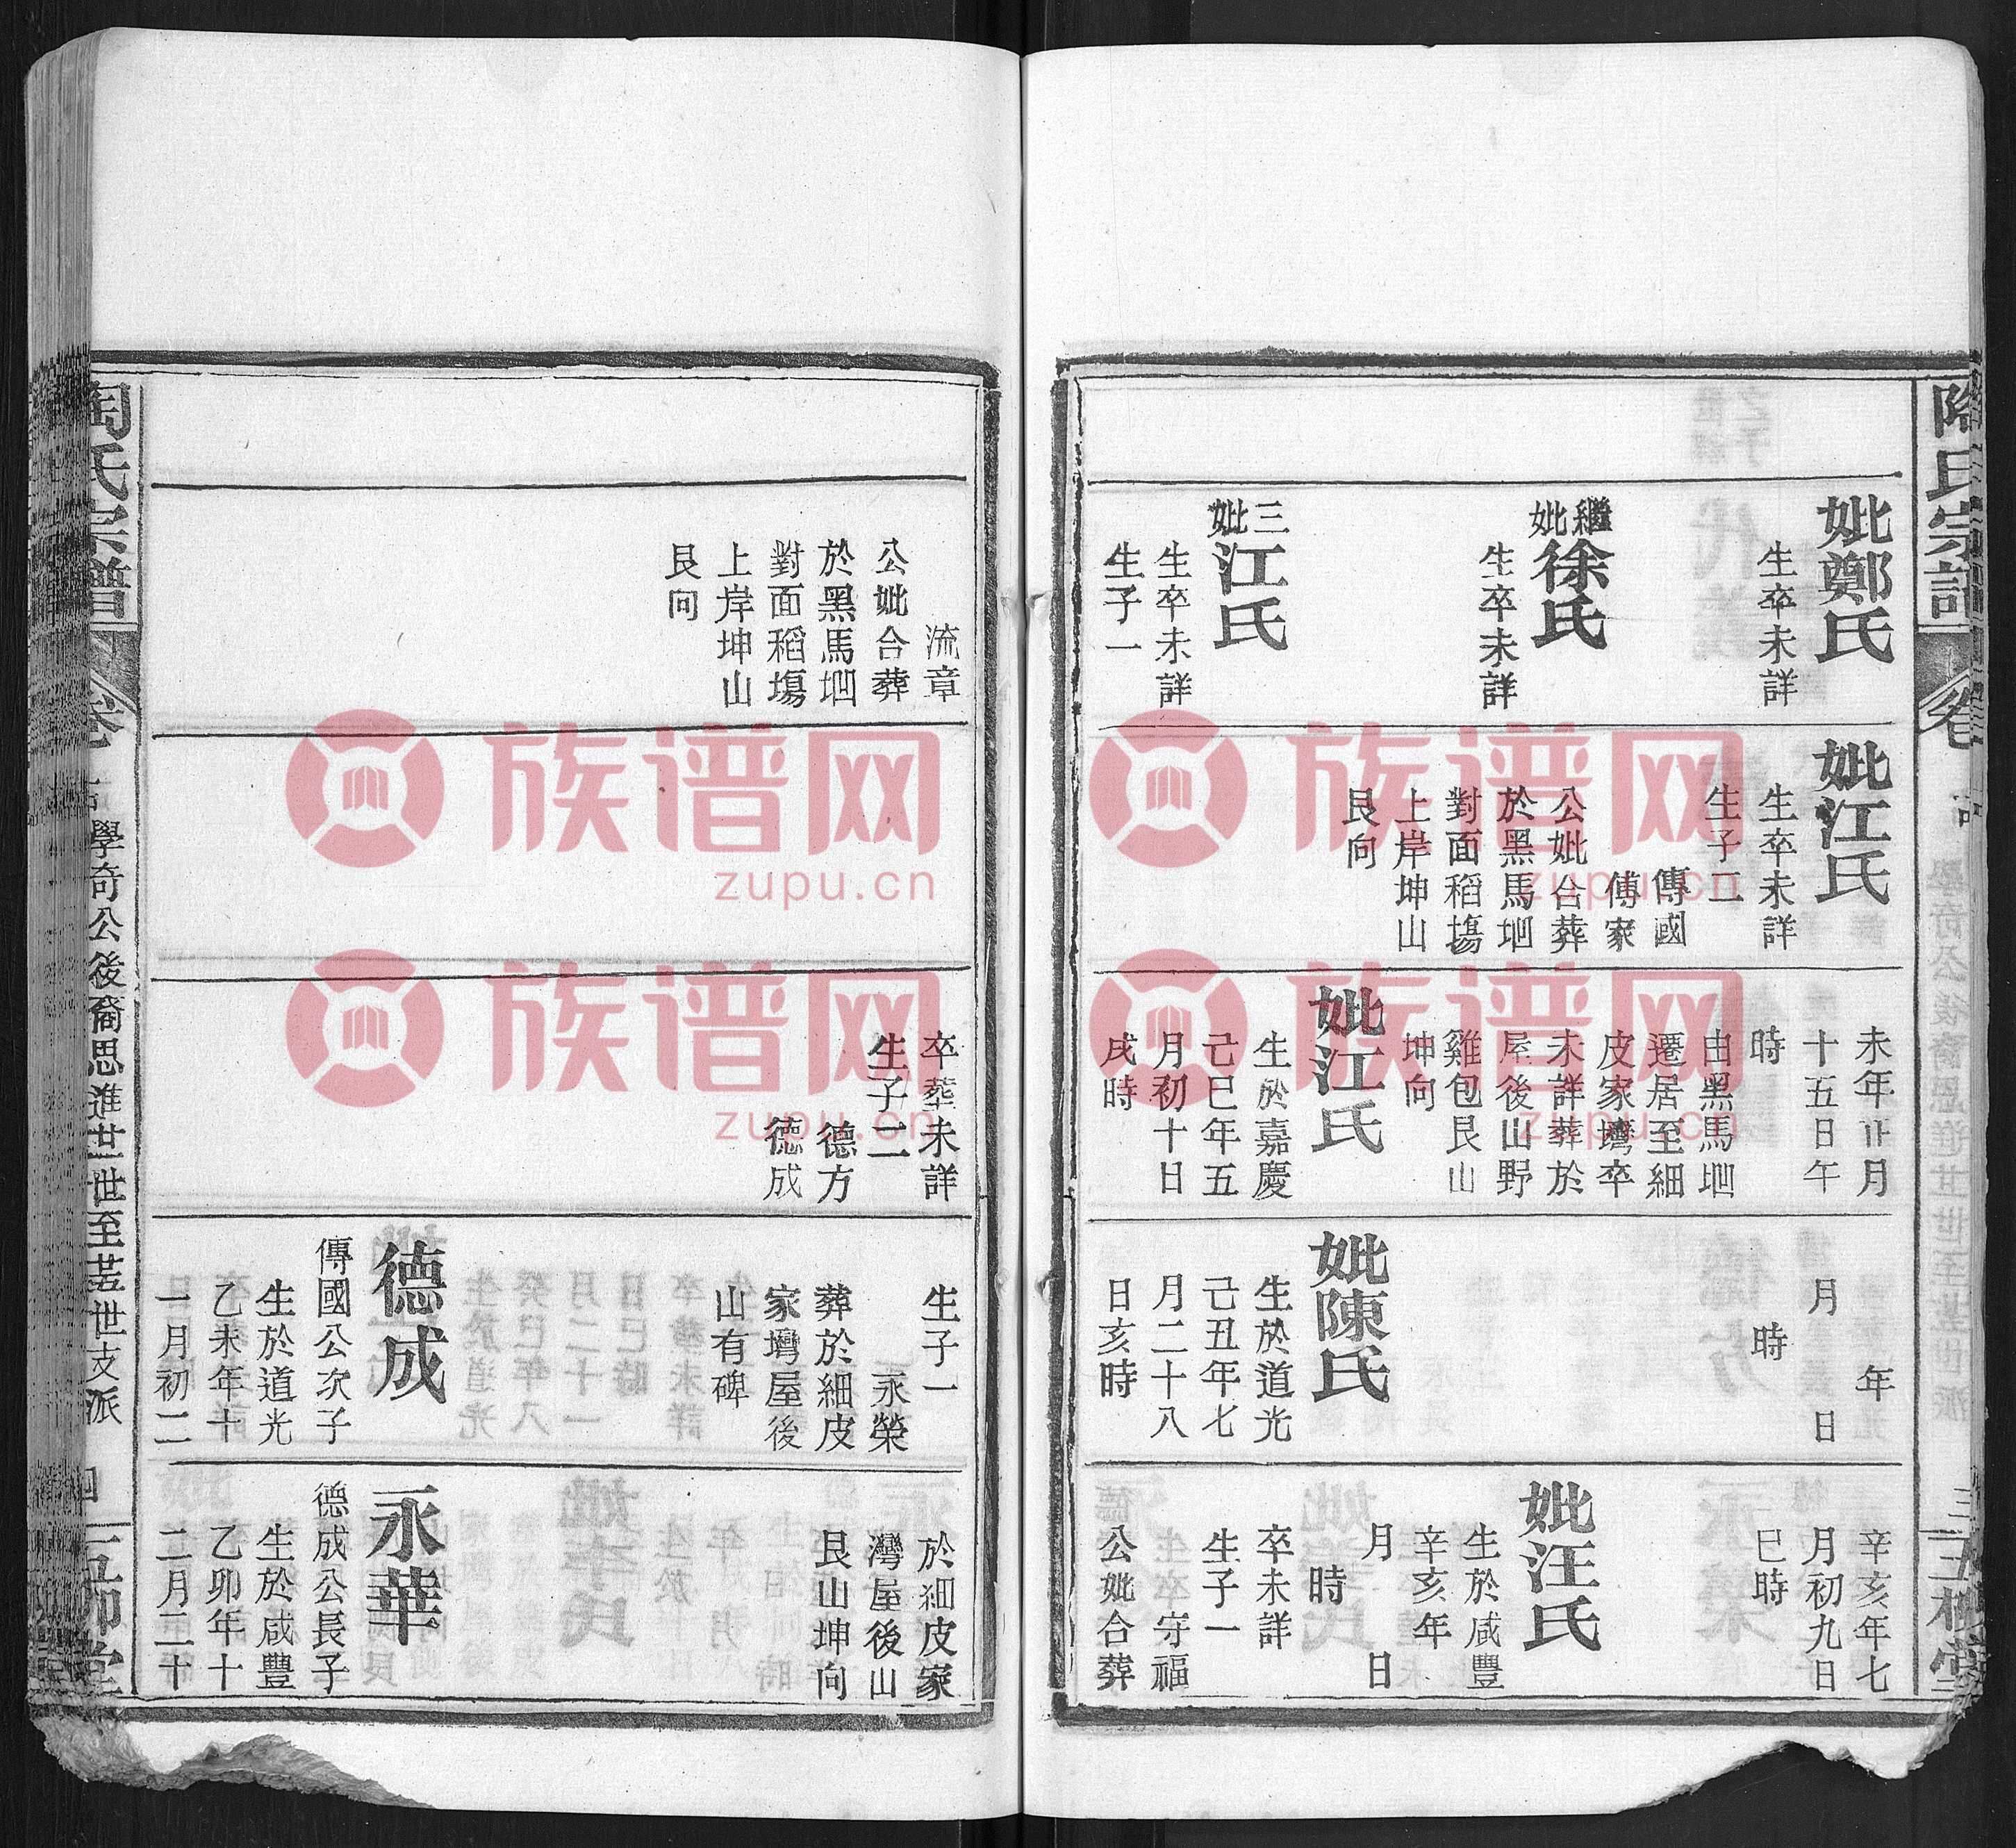 妣鄭氏
生卒未詳
繼妣徐氏
生卒未詳
三妣江氏
生卒未詳
生子一
妣江氏
生卒未詳
生子二
傳國
傳家
公妣合葬
於黑馬垇
對面稻塲
上岸坤山
艮向
未年正月
十五日午
時
由黑馬垇
遷居至細
皮家壪卒
未詳葬於
屋後山野
雞包艮山
坤向
妣江氏
生於嘉慶
己巳年五
月初十日
戌時
年
月 日
時
妣陳氏
生於道光
己丑年七
月二十八
日亥時
辛亥年七
月初九日
巳時
妣汪氏
生於咸豐
辛亥年
月 日
時
卒未詳
生子一
守福
公妣合葬
流章
公妣合葬
於黑馬垇
對面稻塲
上岸坤山
艮向
卒葬未詳
生子二
德方
德成
生子一
永榮
葬於細皮
家壪屋後
山有碑
德成
傳國公次子
生於道光
乙未年十
一月初二
於細皮家
灣屋後山
艮山坤向
永華
德成公長子
生於咸豐
乙卯年十
二月二十
陶氏宗譜
學奇公後裔思進廿一世至廿五世支派
族谱网
zupu.cn
族谱网
zupu.cn
族谱网
zupu.cn
族谱网
zupu.cn